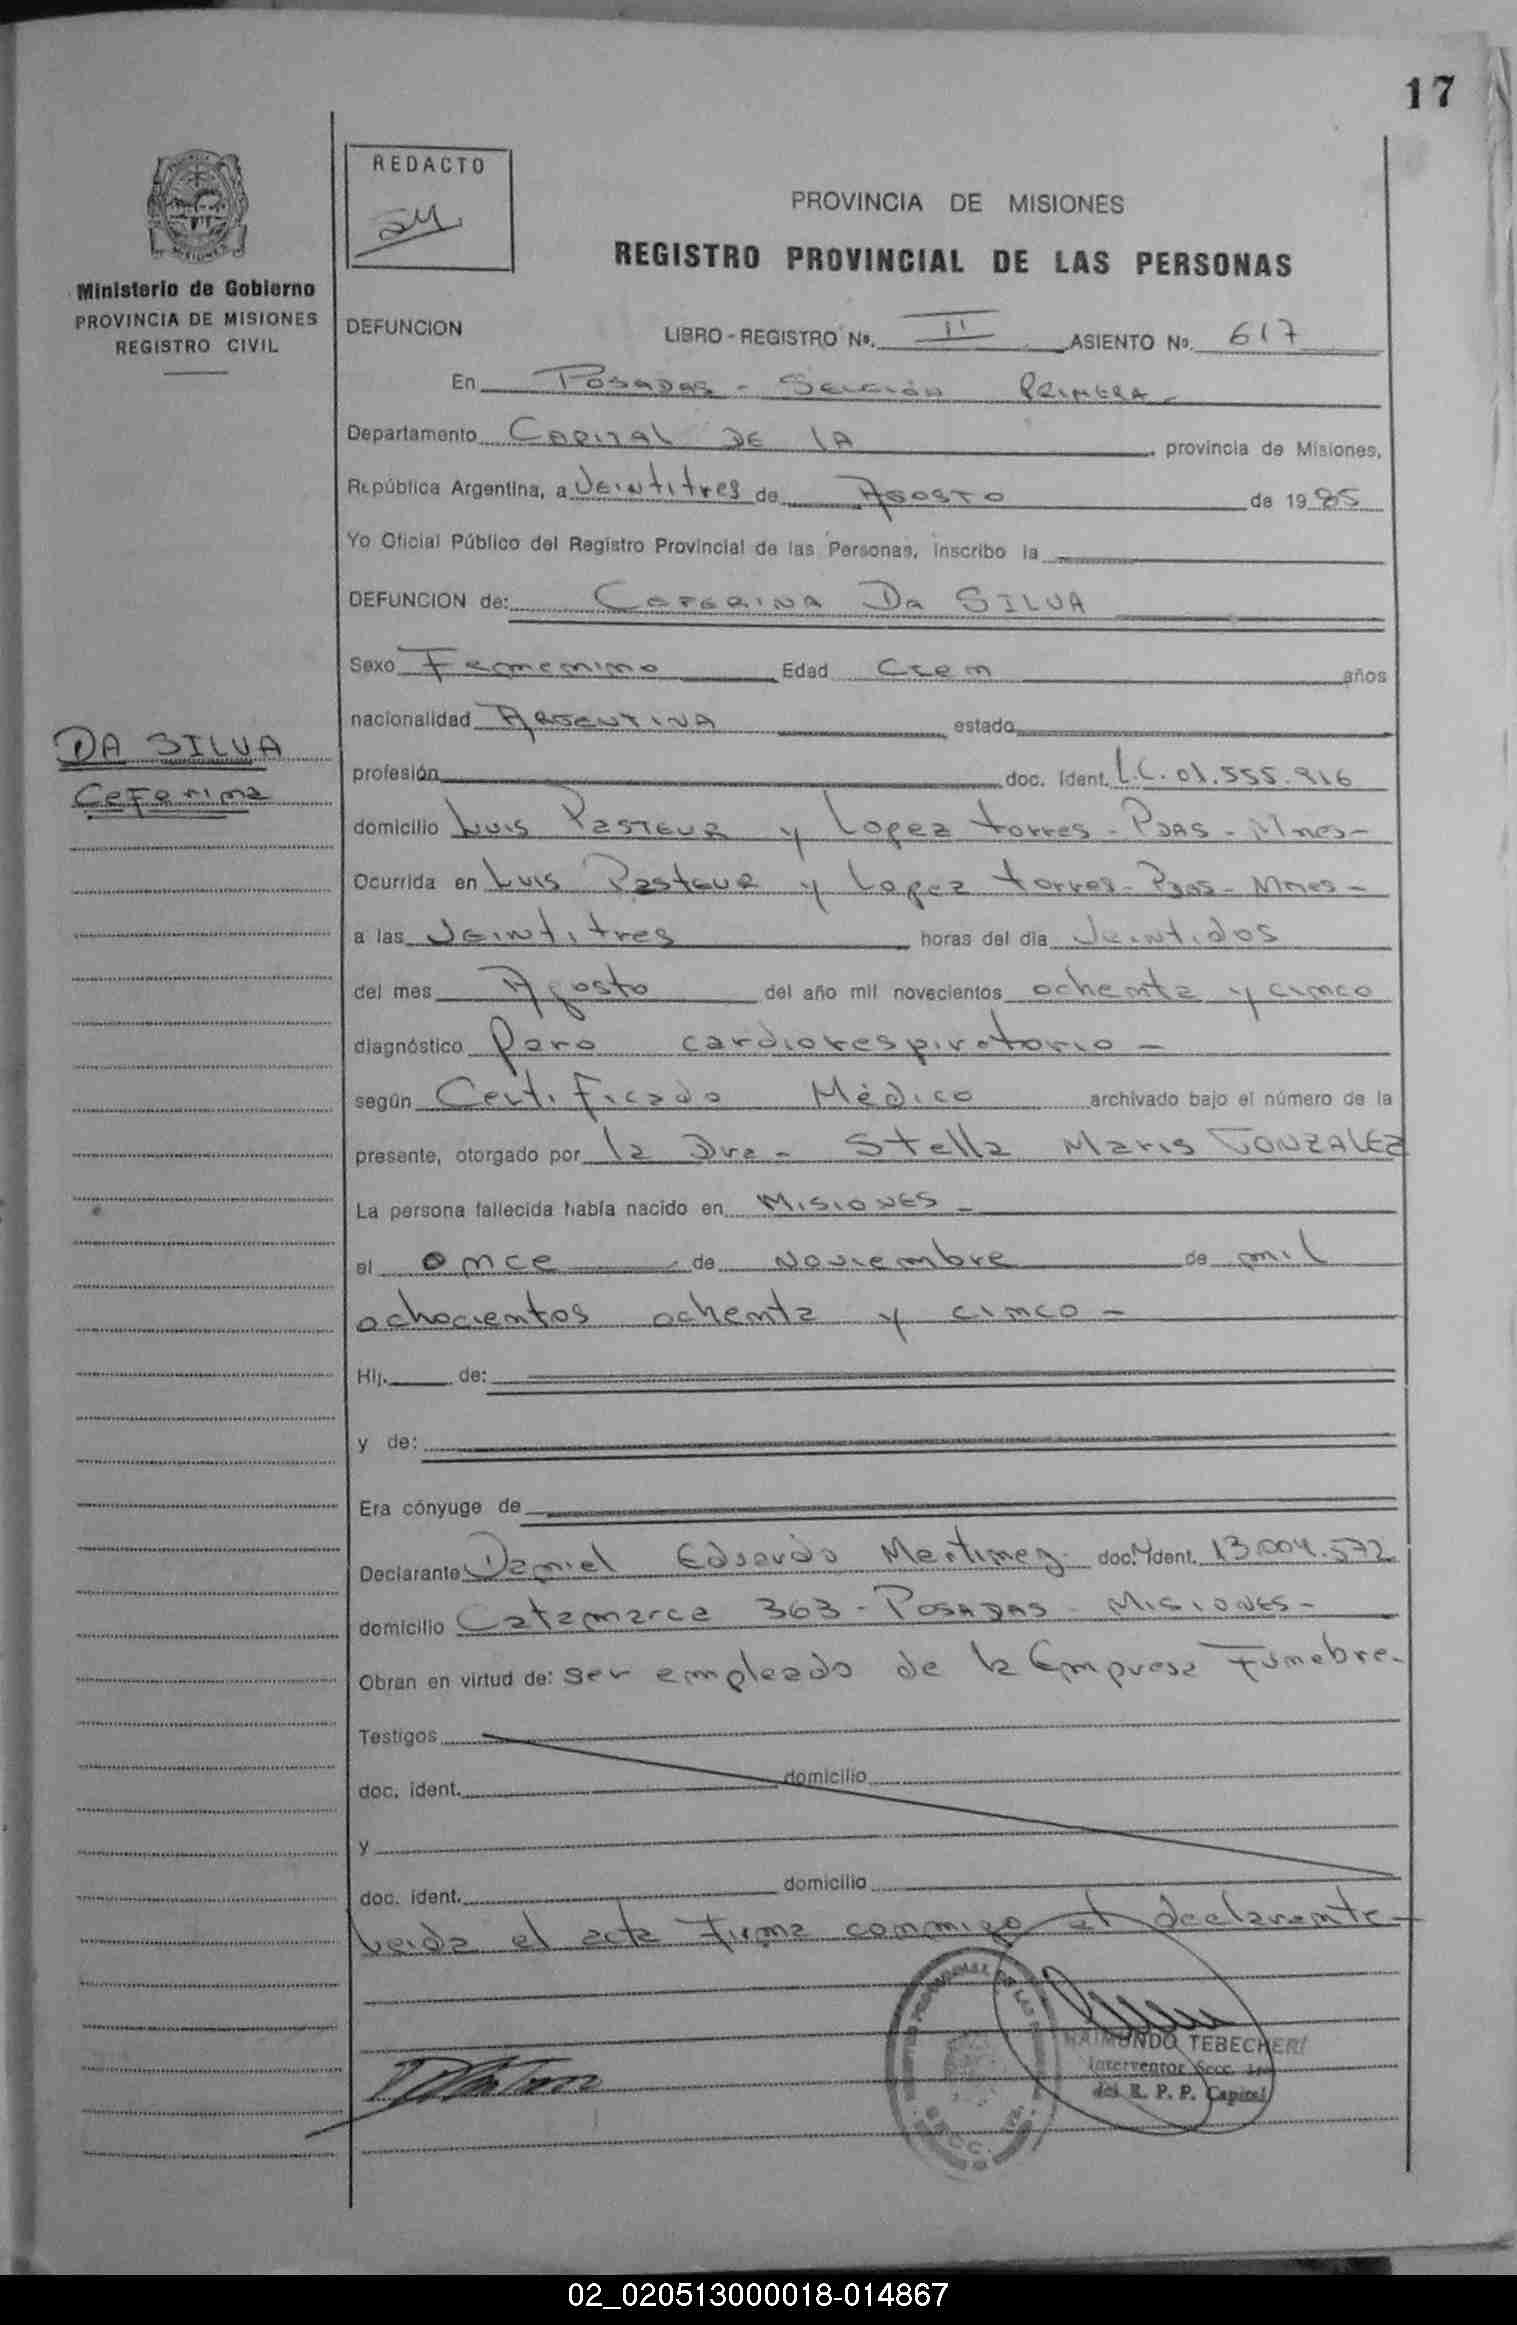 17
REDACTO
PROVINCIA DE MISIONES
REGISTRO PROVINCIAL DE LAS PERSONAS
Ministerio de Gobierno
PROVINCIA DE MISIONES
REGISTRO CIVIL
DEFUNCION LIBRO - REGISTRO No. II ASIENTO No. 617
En Posadas - Sección Primera -
Departamento Capital DE LA provincia de Misiones,
República Argentina, a Veintitres de Agosto de 1985
Yo Oficial Público del Registro Provincial de las Personas, inscribo la
DEFUNCION de: Ceferina Da SILVA
Sexo Femenino Edad Cien años
nacionalidad Argentina estado
DA SILVA
Ceferina
profesión doc. Ident. L.C. 01.555.916
domicilio Luis Pasteur y Lopez torres - Pdas - Mnes -
Ocurrida en Luis Pasteur y Lopez torres - Pdas - Mnes -
a las Veintitres horas del día Veintidos
del mes Agosto del año mil novecientos ochenta y cinco
diagnóstico Paro cardiorespiratorio -
según Certificado Médico archivado bajo el número de la
presente, otorgado por la Dra - Stella Maris GONZALEZ
La persona fallecida había nacido en MISIONES -
el once de Noviembre de mil
ochocientos ochenta y cinco -
Hij. de:
y de:
Era cónyuge de
Declarante Daniel Eduardo Martinez doc. Ident. 13.004.572
domicilio Catamarca 363 - Posadas - Misiones -
Obran en virtud de: ser empleado de la Empresa Funebre -
Testigos
doc. ident. domicilio
y
doc. ident. domicilio
Leida el acta firma conmigo el declarante -
RAIMUNDO TEBECHERI
Interventor Secc. 1ra
del R. P. P. Capital
02_020513000018-014867